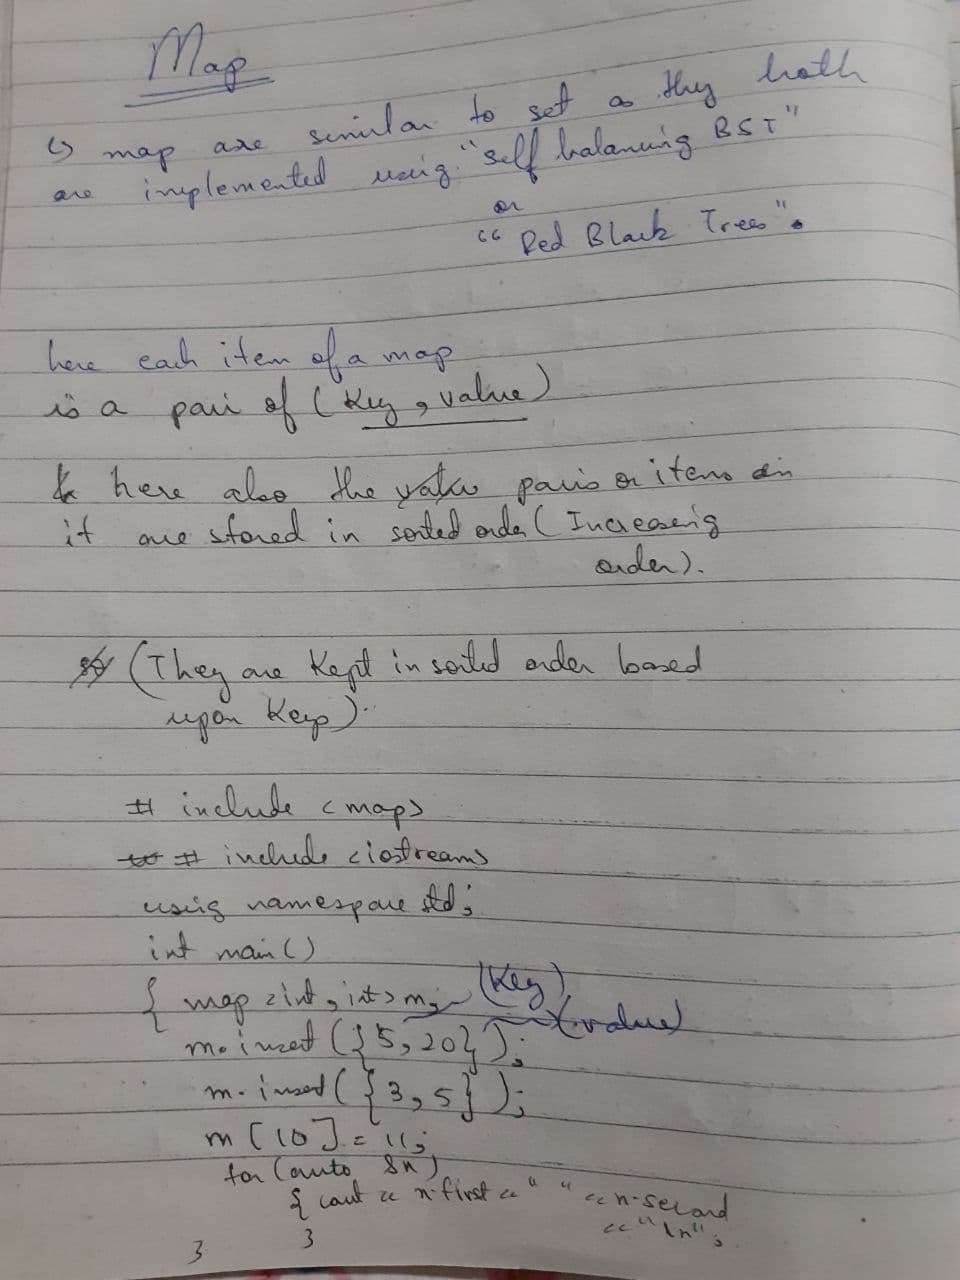 Map
↳ map are similar to set as they both
are implemented using "self balancing BST"
or
"Red Black Trees".
here each item of a map
is a pair of (Key, value)
& here also the pairs or items in
it are stored in sorted order (Increasing
order).
(They are Kept in sorted order based
upon Key).
# include <map>
# include <iostream>
using namespace std;
int main()
{ map <int, int> m; (Key)
(value)
m.insert({5, 20});
m.insert({3, 5});
m[10] = 11;
for (auto &x)
{ cout << x.first << " " << x.second
<< "\n";
}
}